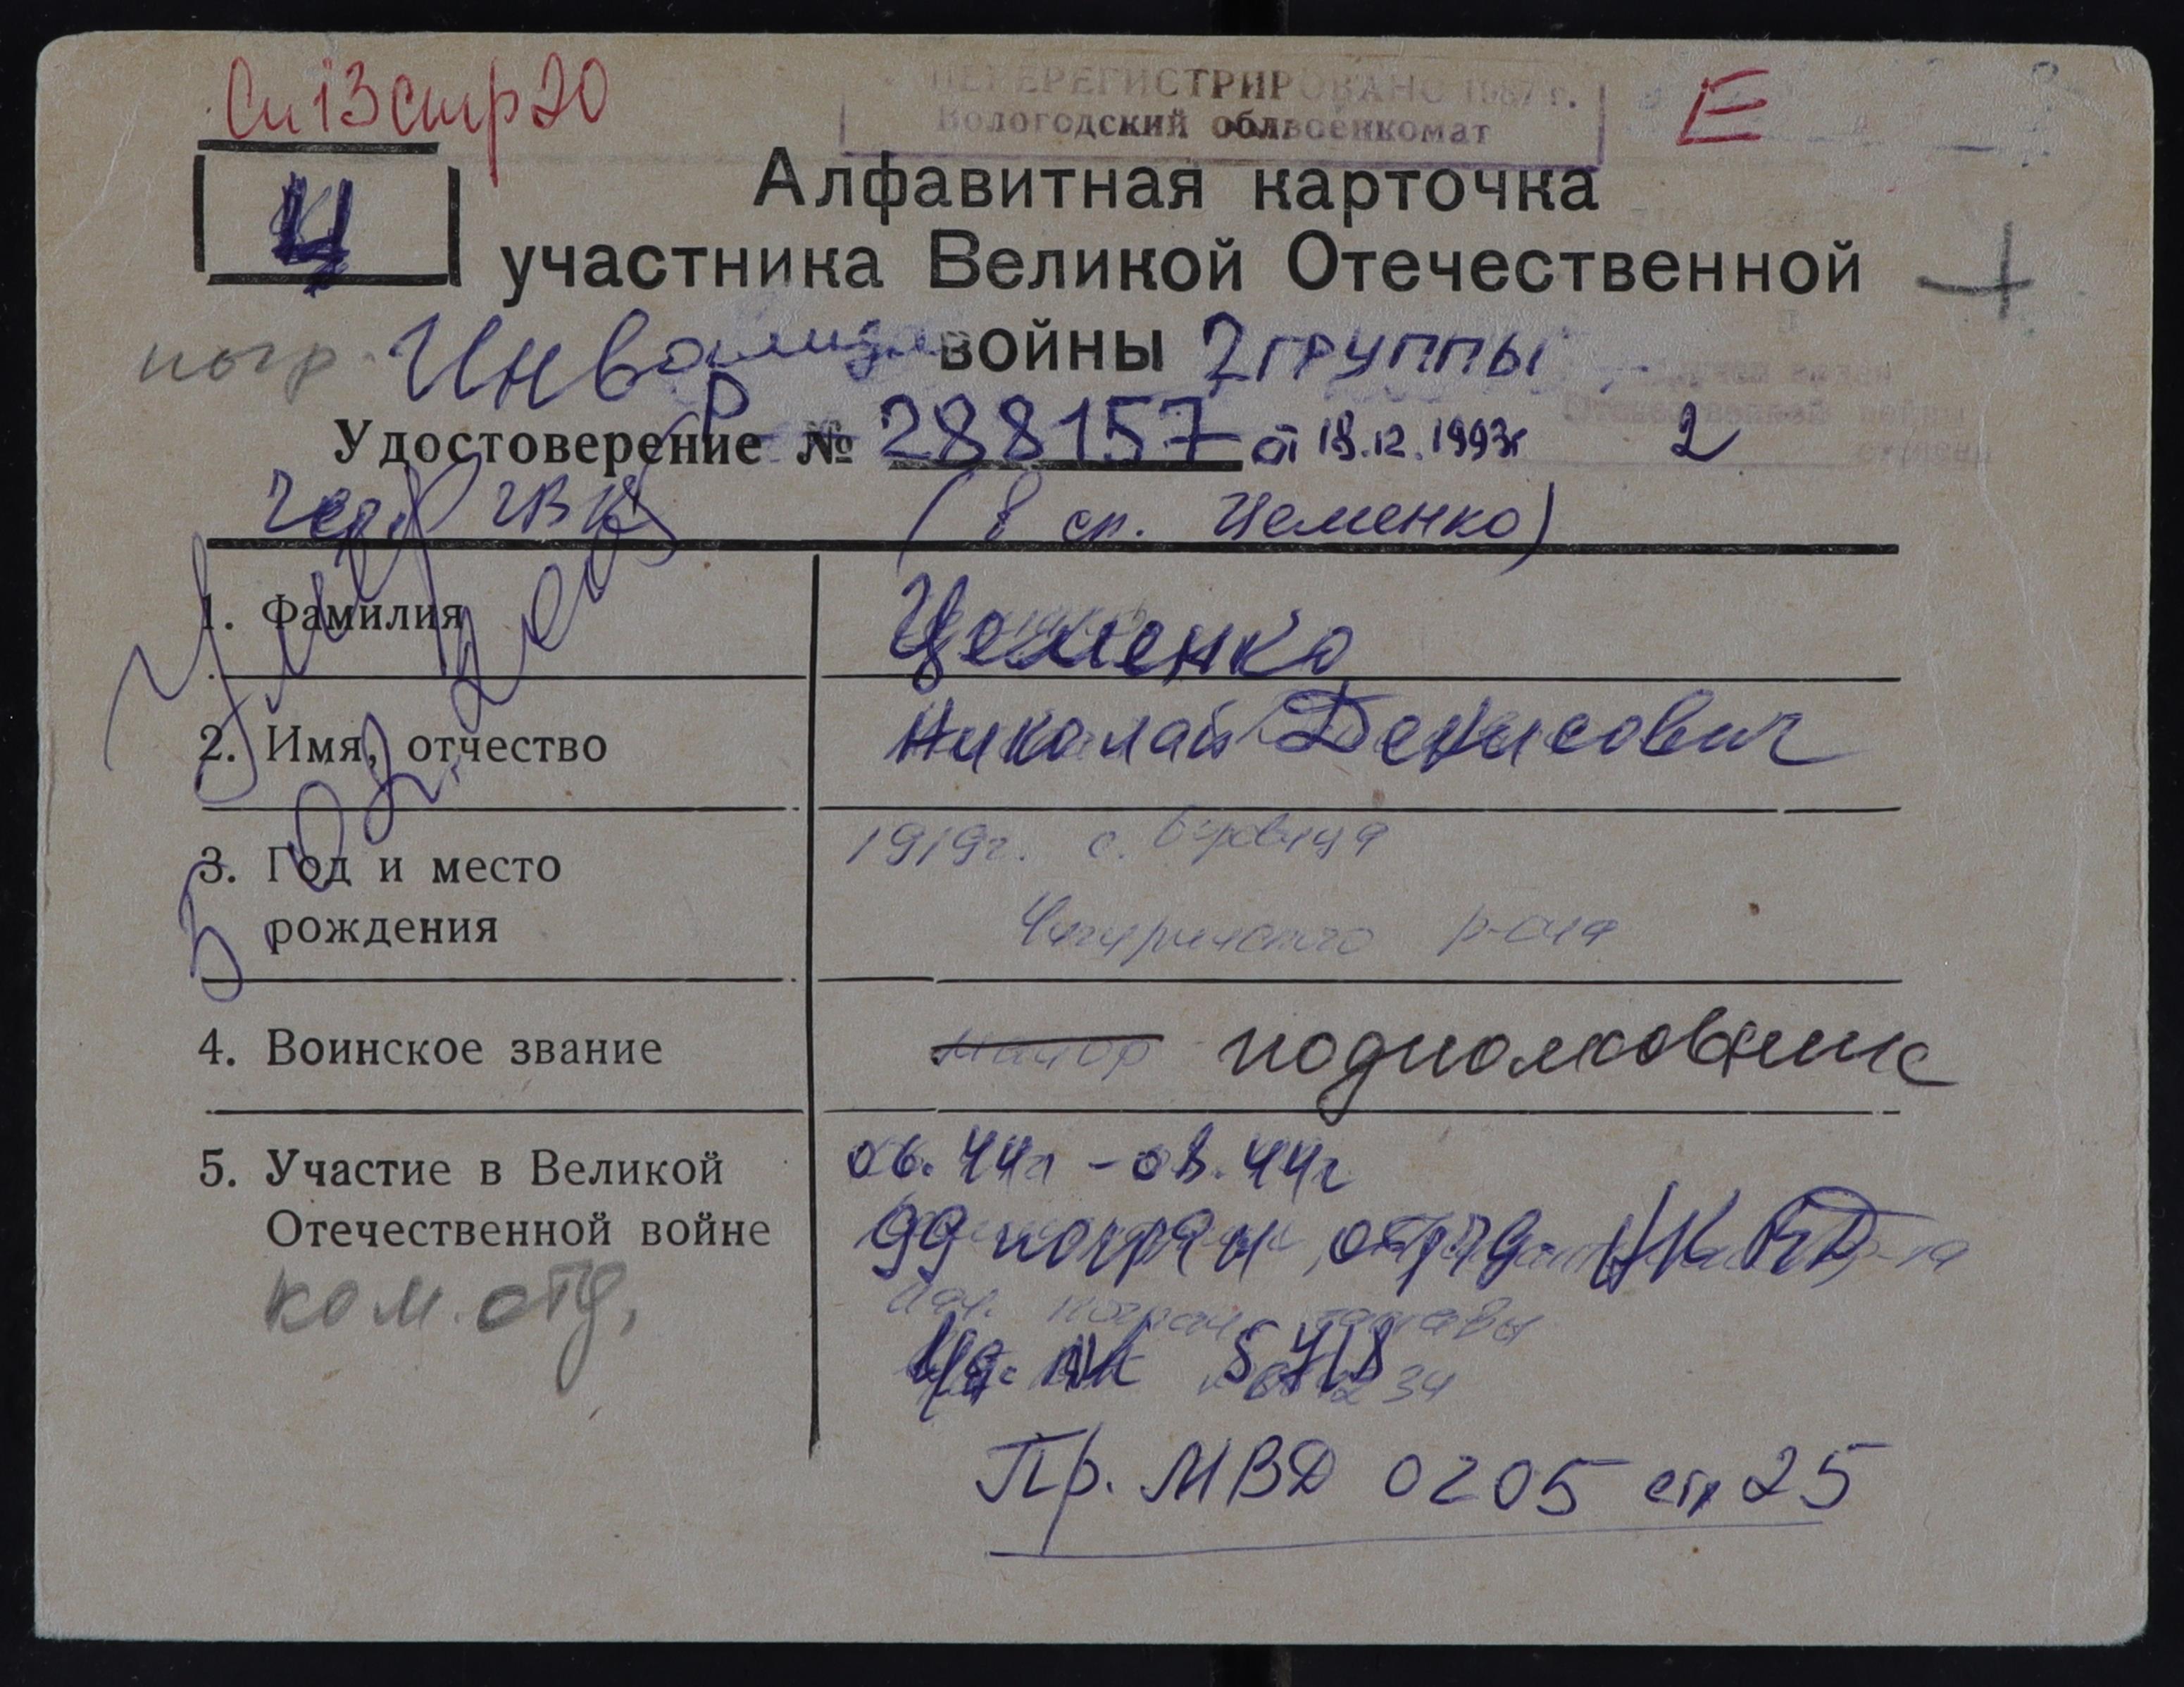 Сп 13 стр 20
ПЕРЕРЕГИСТРИРОВАНО 1987 г.
Вологодский облвоенкомат
Е
Ц
Алфавитная карточка
участника Великой Отечественной
погр. Инвалид войны 2 группы
Р
Удостоверение № 288157 от 18.12.1993г 2
Чер ГВК (В сп. Цеменко)
Умер
5.02.2003
1. Фамилия Цеменко
2. Имя, отчество Николай Денисович
3. Год и место 1919г. с. Боровица
рождения Чигиринского р-она
4. Воинское звание майор подполковник
5. Участие в Великой 06.44г - 08.44г
Отечественной войне 99 погран отряд НКВД
ком. отд.
Нач. погран заставы
Пр. МВД 0205 стр 25